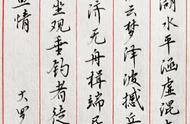 湖水平涵虚混
云梦泽波撼岳
济无舟楫端居
坐观垂钓者徒
鱼情